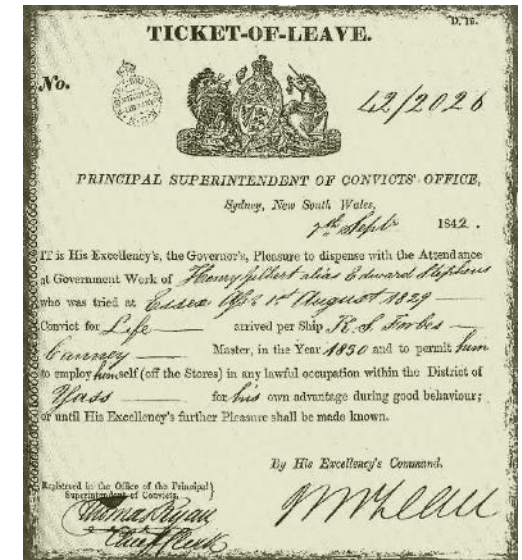 D. 15.
TICKET-OF-LEAVE.
No.
42/2026
PRINCIPAL SUPERINTENDENT OF CONVICTS' OFFICE,
Sydney, New South Wales,
7th Septr 1842.
IT is His Excellency's, the Governor's, Pleasure to dispense with the Attendance
at Government Work of Henry Gilbert alias Edward Stephens
who was tried at Essex Ass 1st August 1829
Convict for Life arrived per Ship K. S. Forbes
Canney Master, in the Year 1830 and to permit him
to employ himself (off the Stores) in any lawful occupation within the District of
Yass for his own advantage during good behaviour;
or until His Excellency's further Pleasure shall be made known.
By His Excellency's Command.
Registered in the Office of the Principal
Superintendent of Convicts.
Thomas Ryan
Chief Clerk